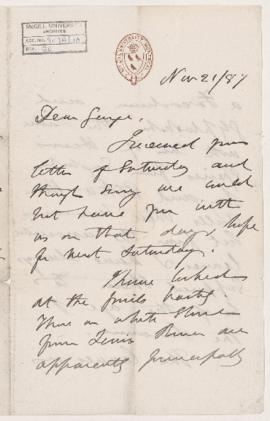 McGILL UNIVERSITY
ARCHIVES
ACC. NO.
REF.
Nov 21/87
Dear George,
I received your
letter of Saturday and
though sorry we could
not have you with
us on that day, hope
for next Saturday.
I have looked
at the fossils hastily.
Those on white
from Lewis River are
apparently principally